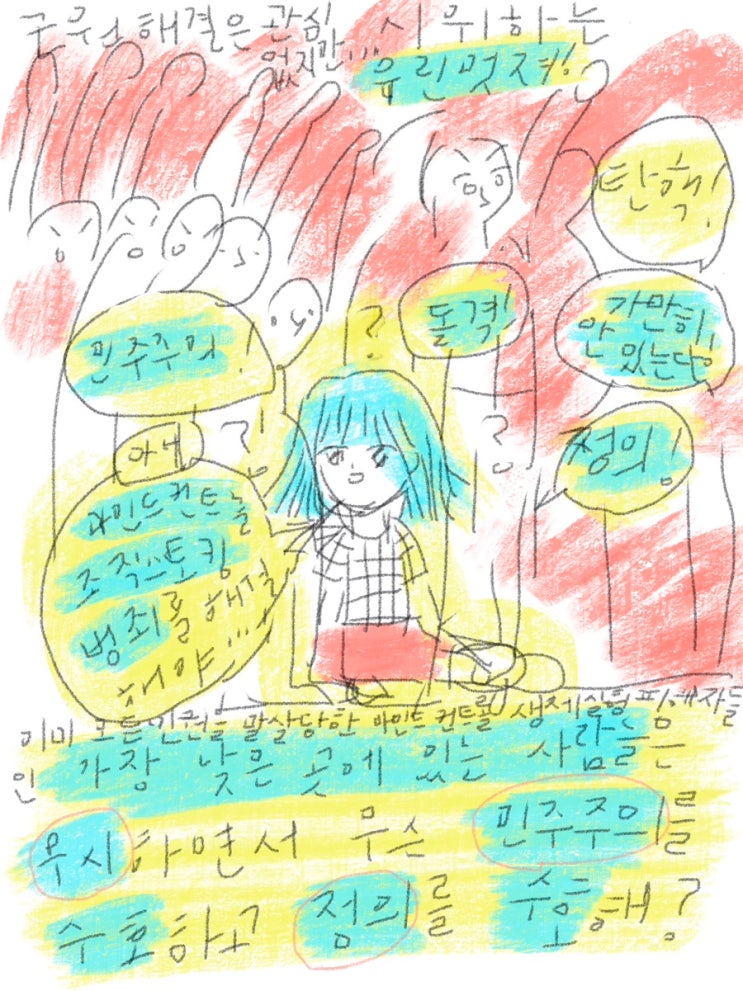 근원 해결은 관심
없지만... 시위하는
우린 멋져!
탄핵!
돌격!
가만히
안 있는다!
민주주의!
?
?!
?
정의!
아네
마인드컨트롤
조직스토킹
범죄를 해결
해야...
이미 모든 인권을 말살당한 마인드컨트롤 생체실험 피해자들
인 가장 낮은 곳에 있는 사람들은
무시하면서 무슨 민주주의를
수호하고 정의를 수호해?